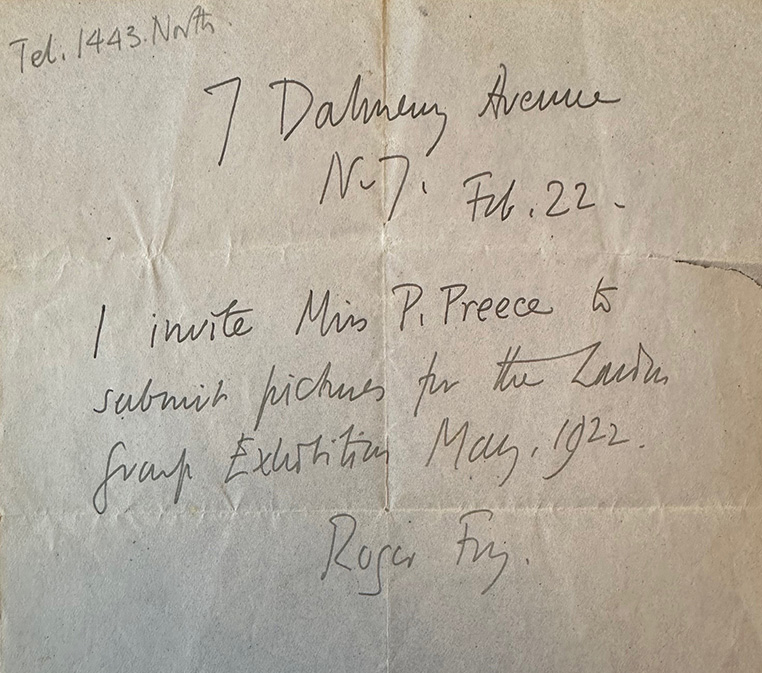 Tel. 1443. North.
7 Dalmeny Avenue
N.7. Feb. 22.
I invite Miss P. Preece to
submit pictures for the London
Group Exhibition May, 1922.
Roger Fry.